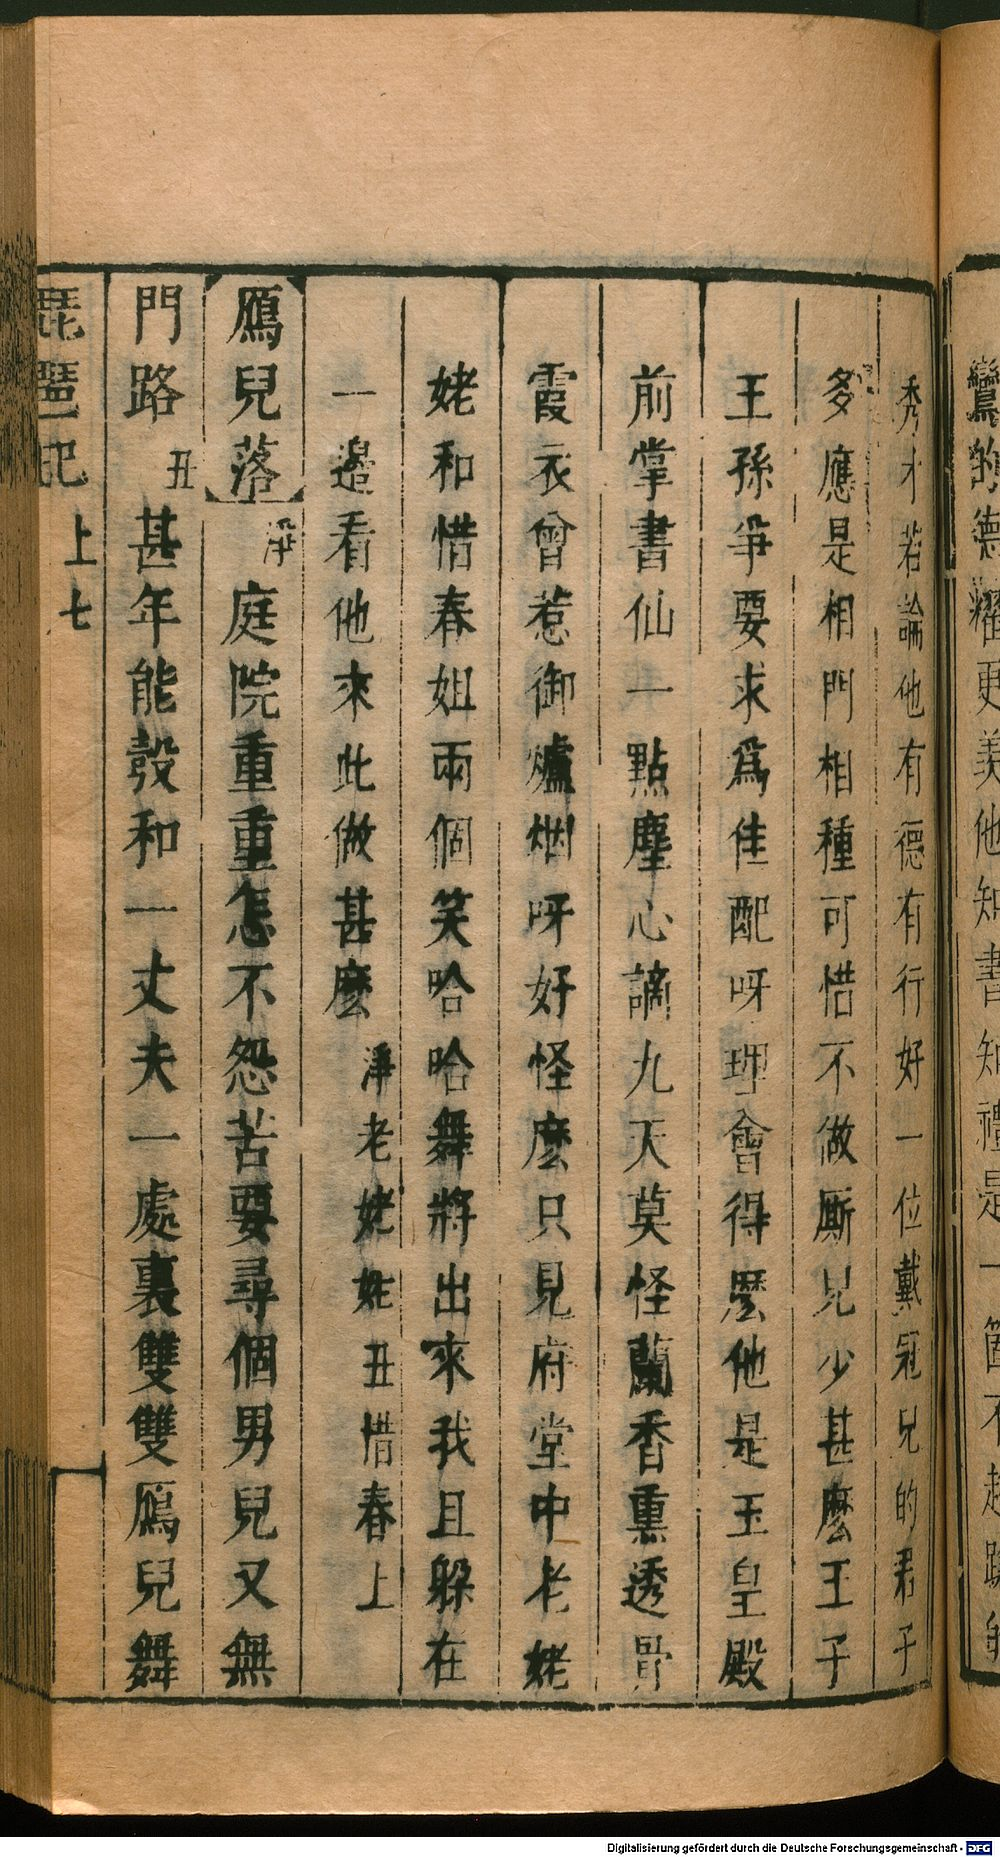 鸞的德耀更羨他知書知禮是一箇不趨蹌
秀才若論他有德有行好一位戴冠兒的君子
多應是相門相種可惜不做厮兒少甚麽王子
王孫爭要求爲佳配呀理會得麽他是玉皇殿
前掌書仙一點塵心謫九天莫怪蘭香熏透骨
霞衣曾惹御爐烟呀好怪麽只見府堂中老姥
姥和惜春姐兩個笑哈哈舞將出來我且躱在
一邉看他來此做甚麽淨老姥姥丑惜春上
鴈兒落淨庭院重重怎不怨苦要尋個男兒又無
門路丑甚年能彀和一丈夫一處裏雙雙鴈兒舞
琵琶記上七
Digitalisierung gefördert durch die Deutsche Forschungsgemeinschaft - DFG